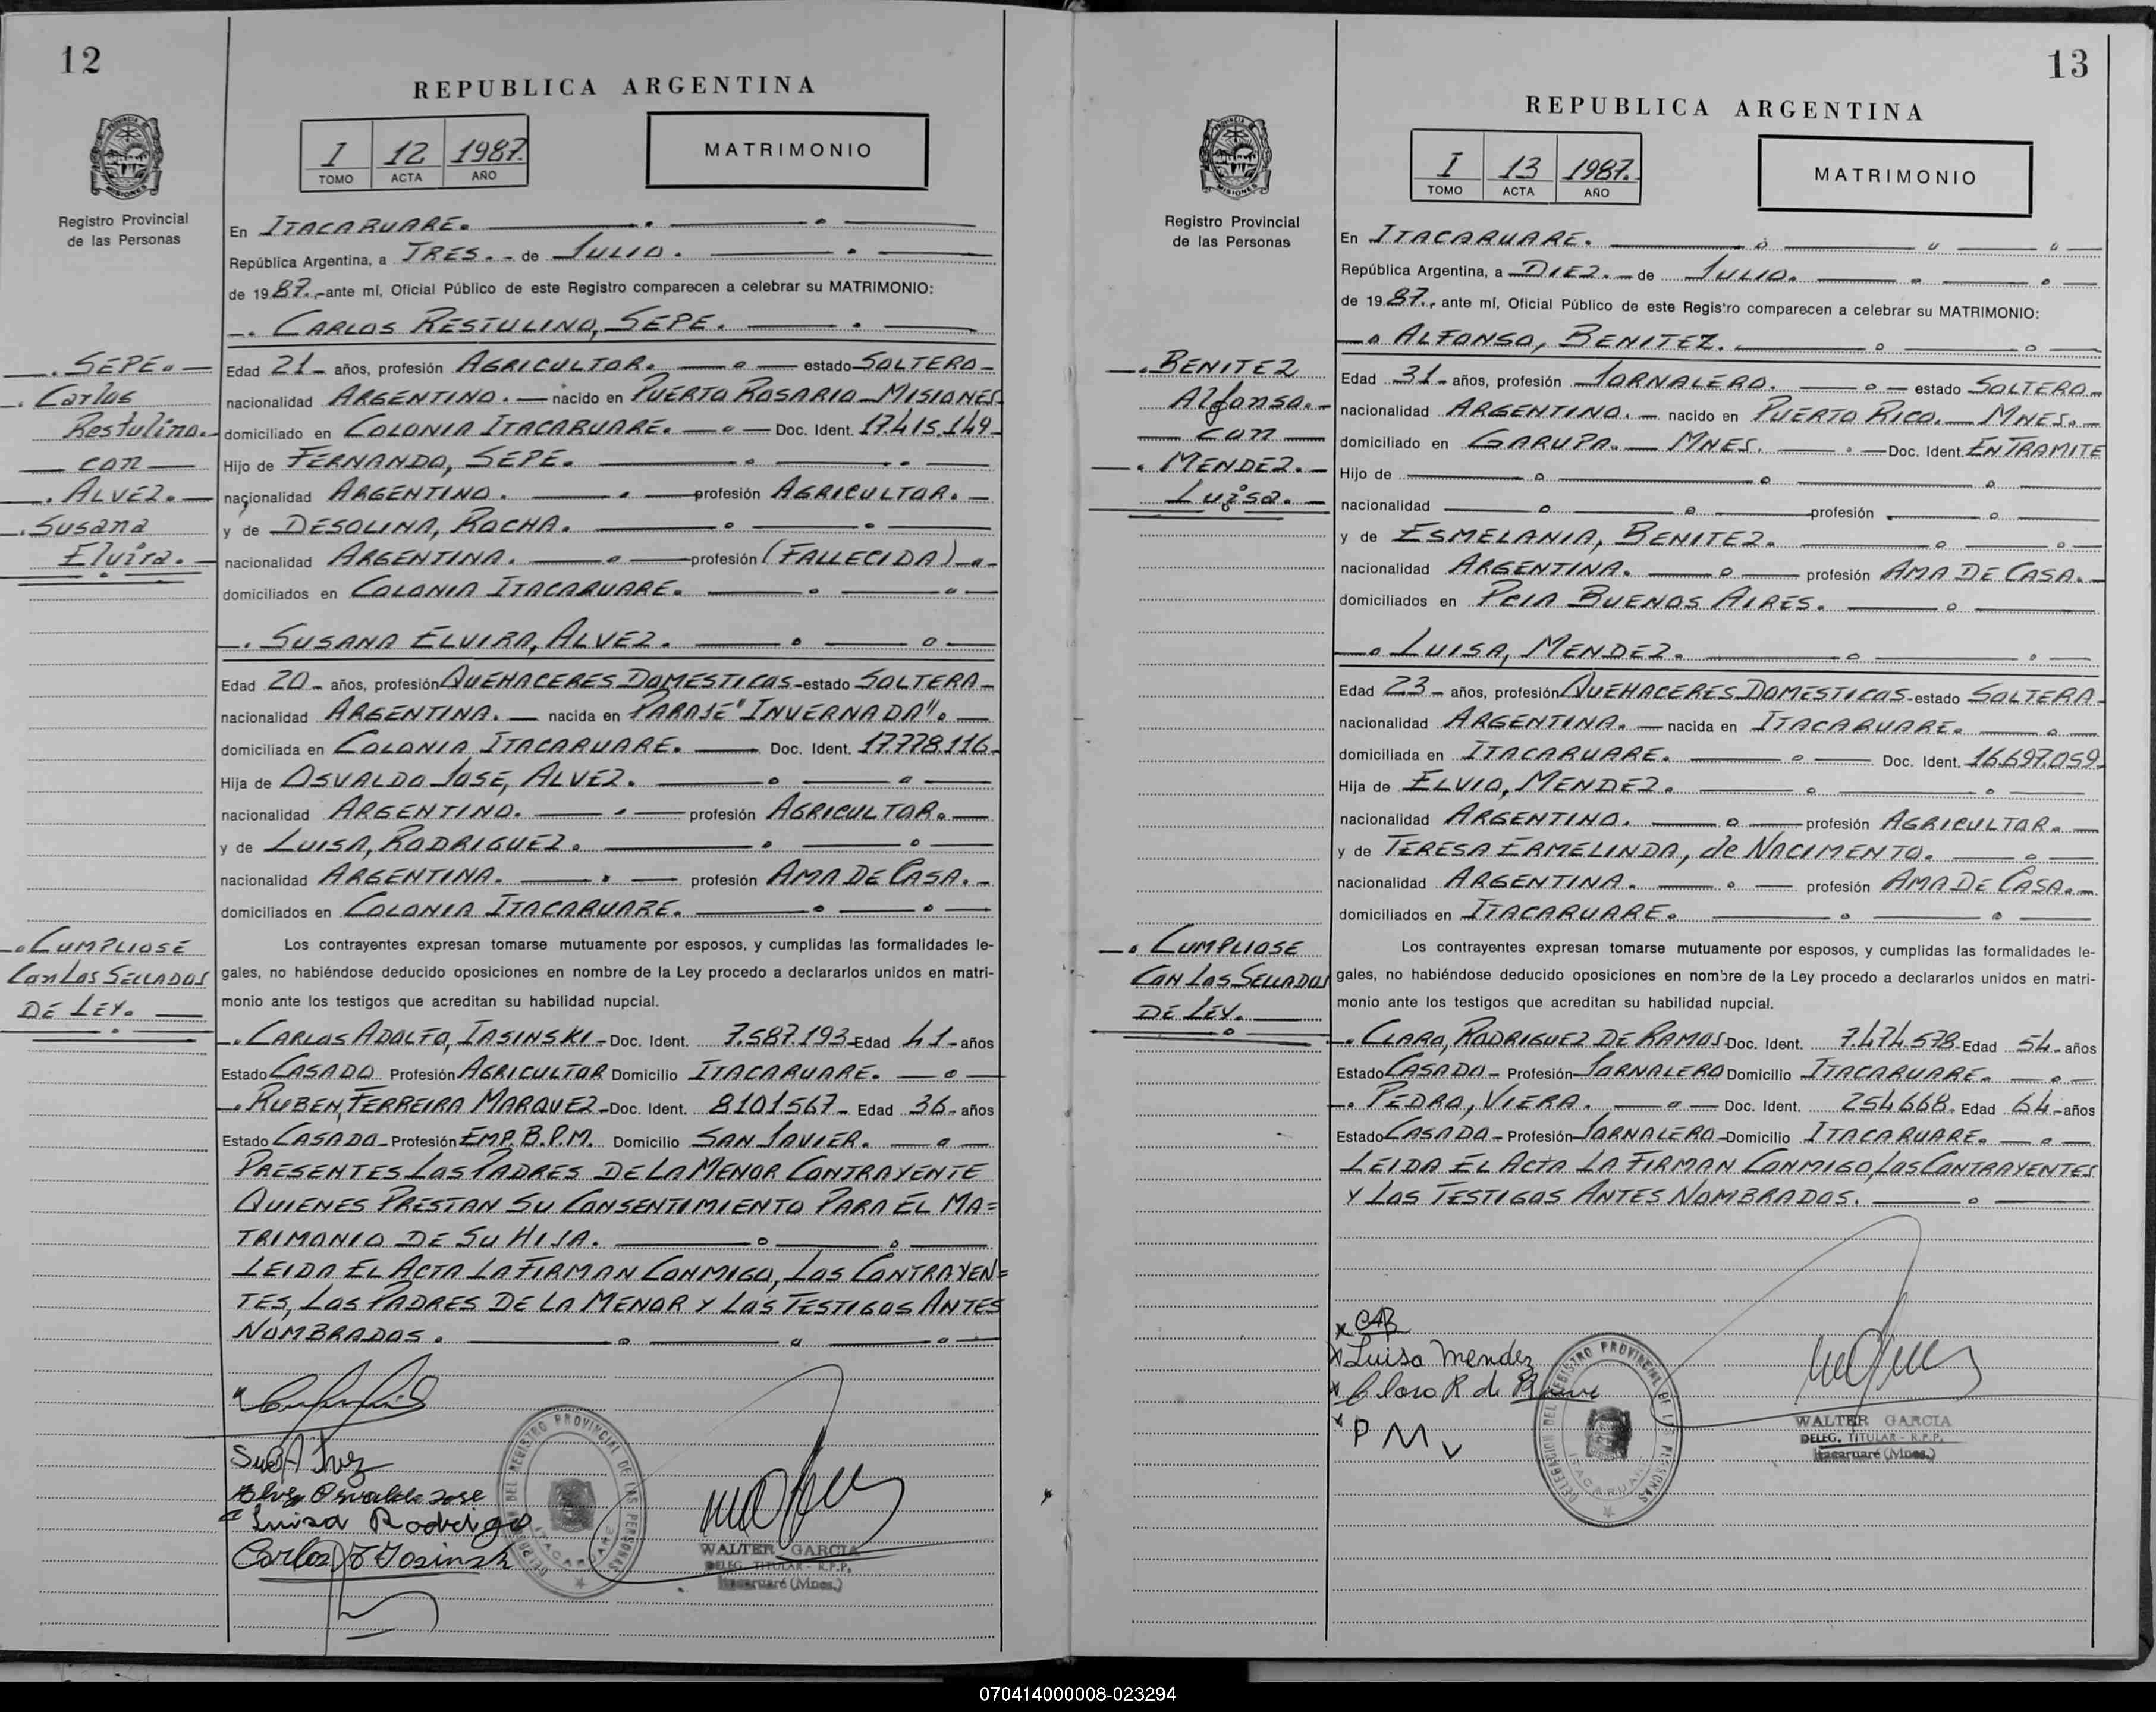 12
REPUBLICA ARGENTINA
I 12 1987.
TOMO ACTA AÑO
MATRIMONIO
MISIONES
Registro Provincial
de las Personas
En ITACARUARE.
República Argentina, a TRES.- de JULIO.
de 1987.- ante mí, Oficial Público de este Registro comparecen a celebrar su MATRIMONIO:
CARLOS RESTULINO, SEPE.
SEPE.
Carlos
Restulino.
con
ALVEZ.
Susana
Elvira.
Edad 21 años, profesión AGRICULTOR. estado SOLTERO
nacionalidad ARGENTINO. nacido en PUERTO ROSARIO - MISIONES
domiciliado en COLONIA ITACARUARE. Doc. Ident. 17.415.149
Hijo de FERNANDO, SEPE.
nacionalidad ARGENTINO. profesión AGRICULTOR.
y de DESOLINA, ROCHA.
nacionalidad ARGENTINA. profesión (FALLECIDA)
domiciliados en COLONIA ITACARUARE.
SUSANA ELVIRA, ALVEZ.
Edad 20 años, profesión QUEHACERES DOMESTICOS estado SOLTERA
nacionalidad ARGENTINA. nacida en PARAJE "INVERNADA".
domiciliada en COLONIA ITACARUARE. Doc. Ident. 17.778.116
Hija de OSVALDO JOSE, ALVEZ.
nacionalidad ARGENTINO. profesión AGRICULTOR.
y de LUISA, RODRIGUEZ.
nacionalidad ARGENTINA. profesión AMA DE CASA.
domiciliados en COLONIA ITACARUARE.
CUMPLIOSE
CON LOS SELLADOS
DE LEY.
Los contrayentes expresan tomarse mutuamente por esposos, y cumplidas las formalidades le-
gales, no habiéndose deducido oposiciones en nombre de la Ley procedo a declararlos unidos en matri-
monio ante los testigos que acreditan su habilidad nupcial.
CARLOS ADOLFO, IASINSKI - Doc. Ident. 7.587.193 Edad 41 años
Estado CASADO Profesión AGRICULTOR Domicilio ITACARUARE.
RUBEN, FERREIRA MARQUEZ - Doc. Ident. 8101567 - Edad 36 años
Estado CASADO - Profesión EMP. B.P.M. Domicilio SAN JAVIER.
PRESENTES LOS PADRES DE LA MENOR CONTRAYENTE
QUIENES PRESTAN SU CONSENTIMIENTO PARA EL MA=
TRIMONIO DE SU HIJA.
LEIDA EL ACTA LA FIRMAN CONMIGO, LOS CONTRAYEN=
TES, LOS PADRES DE LA MENOR Y LOS TESTIGOS ANTES
NOMBRADOS.
Osvaldo Jose
Luisa Rodrigo
DELEGACION DEL REGISTRO PROVINCIAL DE LAS PERSONAS
ITACARUARE
WALTER GARCIA
DELEG. TITULAR - R.P.P.
Itacaruaré (Mnes.)
13
REPUBLICA ARGENTINA
I 13 1987.
TOMO ACTA AÑO
MATRIMONIO
MISIONES
Registro Provincial
de las Personas
En ITACARUARE.
República Argentina, a DIEZ. de JULIO.
de 1987., ante mí, Oficial Público de este Registro comparecen a celebrar su MATRIMONIO:
ALFONSO, BENITEZ.
BENITEZ
Alfonso.
con
MENDEZ.
Luisa.
Edad 31 años, profesión JORNALERO. estado SOLTERO
nacionalidad ARGENTINO. nacido en PUERTO RICO. MNES.
domiciliado en GARUPA. MNES. Doc. Ident. EN TRAMITE
Hijo de
nacionalidad profesión
y de ESMELANIA, BENITEZ.
nacionalidad ARGENTINA. profesión AMA DE CASA.
domiciliados en PCIA BUENOS AIRES.
LUISA, MENDEZ.
Edad 23 años, profesión QUEHACERES DOMESTICOS estado SOLTERA
nacionalidad ARGENTINA. nacida en ITACARUARE.
domiciliada en ITACARUARE. Doc. Ident. 16.697.059
Hija de ELVIO, MENDEZ.
nacionalidad ARGENTINO. profesión AGRICULTOR.
y de TERESA ERMELINDA, de NACIMENTO.
nacionalidad ARGENTINA. profesión AMA DE CASA.
domiciliados en ITACARUARE.
CUMPLIOSE
CON LOS SELLADOS
DE LEY.
Los contrayentes expresan tomarse mutuamente por esposos, y cumplidas las formalidades le-
gales, no habiéndose deducido oposiciones en nombre de la Ley procedo a declararlos unidos en matri-
monio ante los testigos que acreditan su habilidad nupcial.
CLARO, RODRIGUEZ DE RAMOS - Doc. Ident. 7.474.578 - Edad 54 años
Estado CASADO - Profesión JORNALERO Domicilio ITACARUARE.
PEDRO, VIERA. Doc. Ident. 254668 - Edad 64 años
Estado CASADO - Profesión JORNALERO - Domicilio ITACARUARE.
LEIDA EL ACTA LA FIRMAN CONMIGO, LOS CONTRAYENTES
Y LOS TESTIGOS ANTES NOMBRADOS.
Luisa Mendez
Claro R de
P M V
DELEGACION DEL REGISTRO PROVINCIAL DE LAS PERSONAS
ITACARUARE
WALTER GARCIA
DELEG. TITULAR - R.P.P.
Itacaruaré (Mnes.)
070414000008-023294